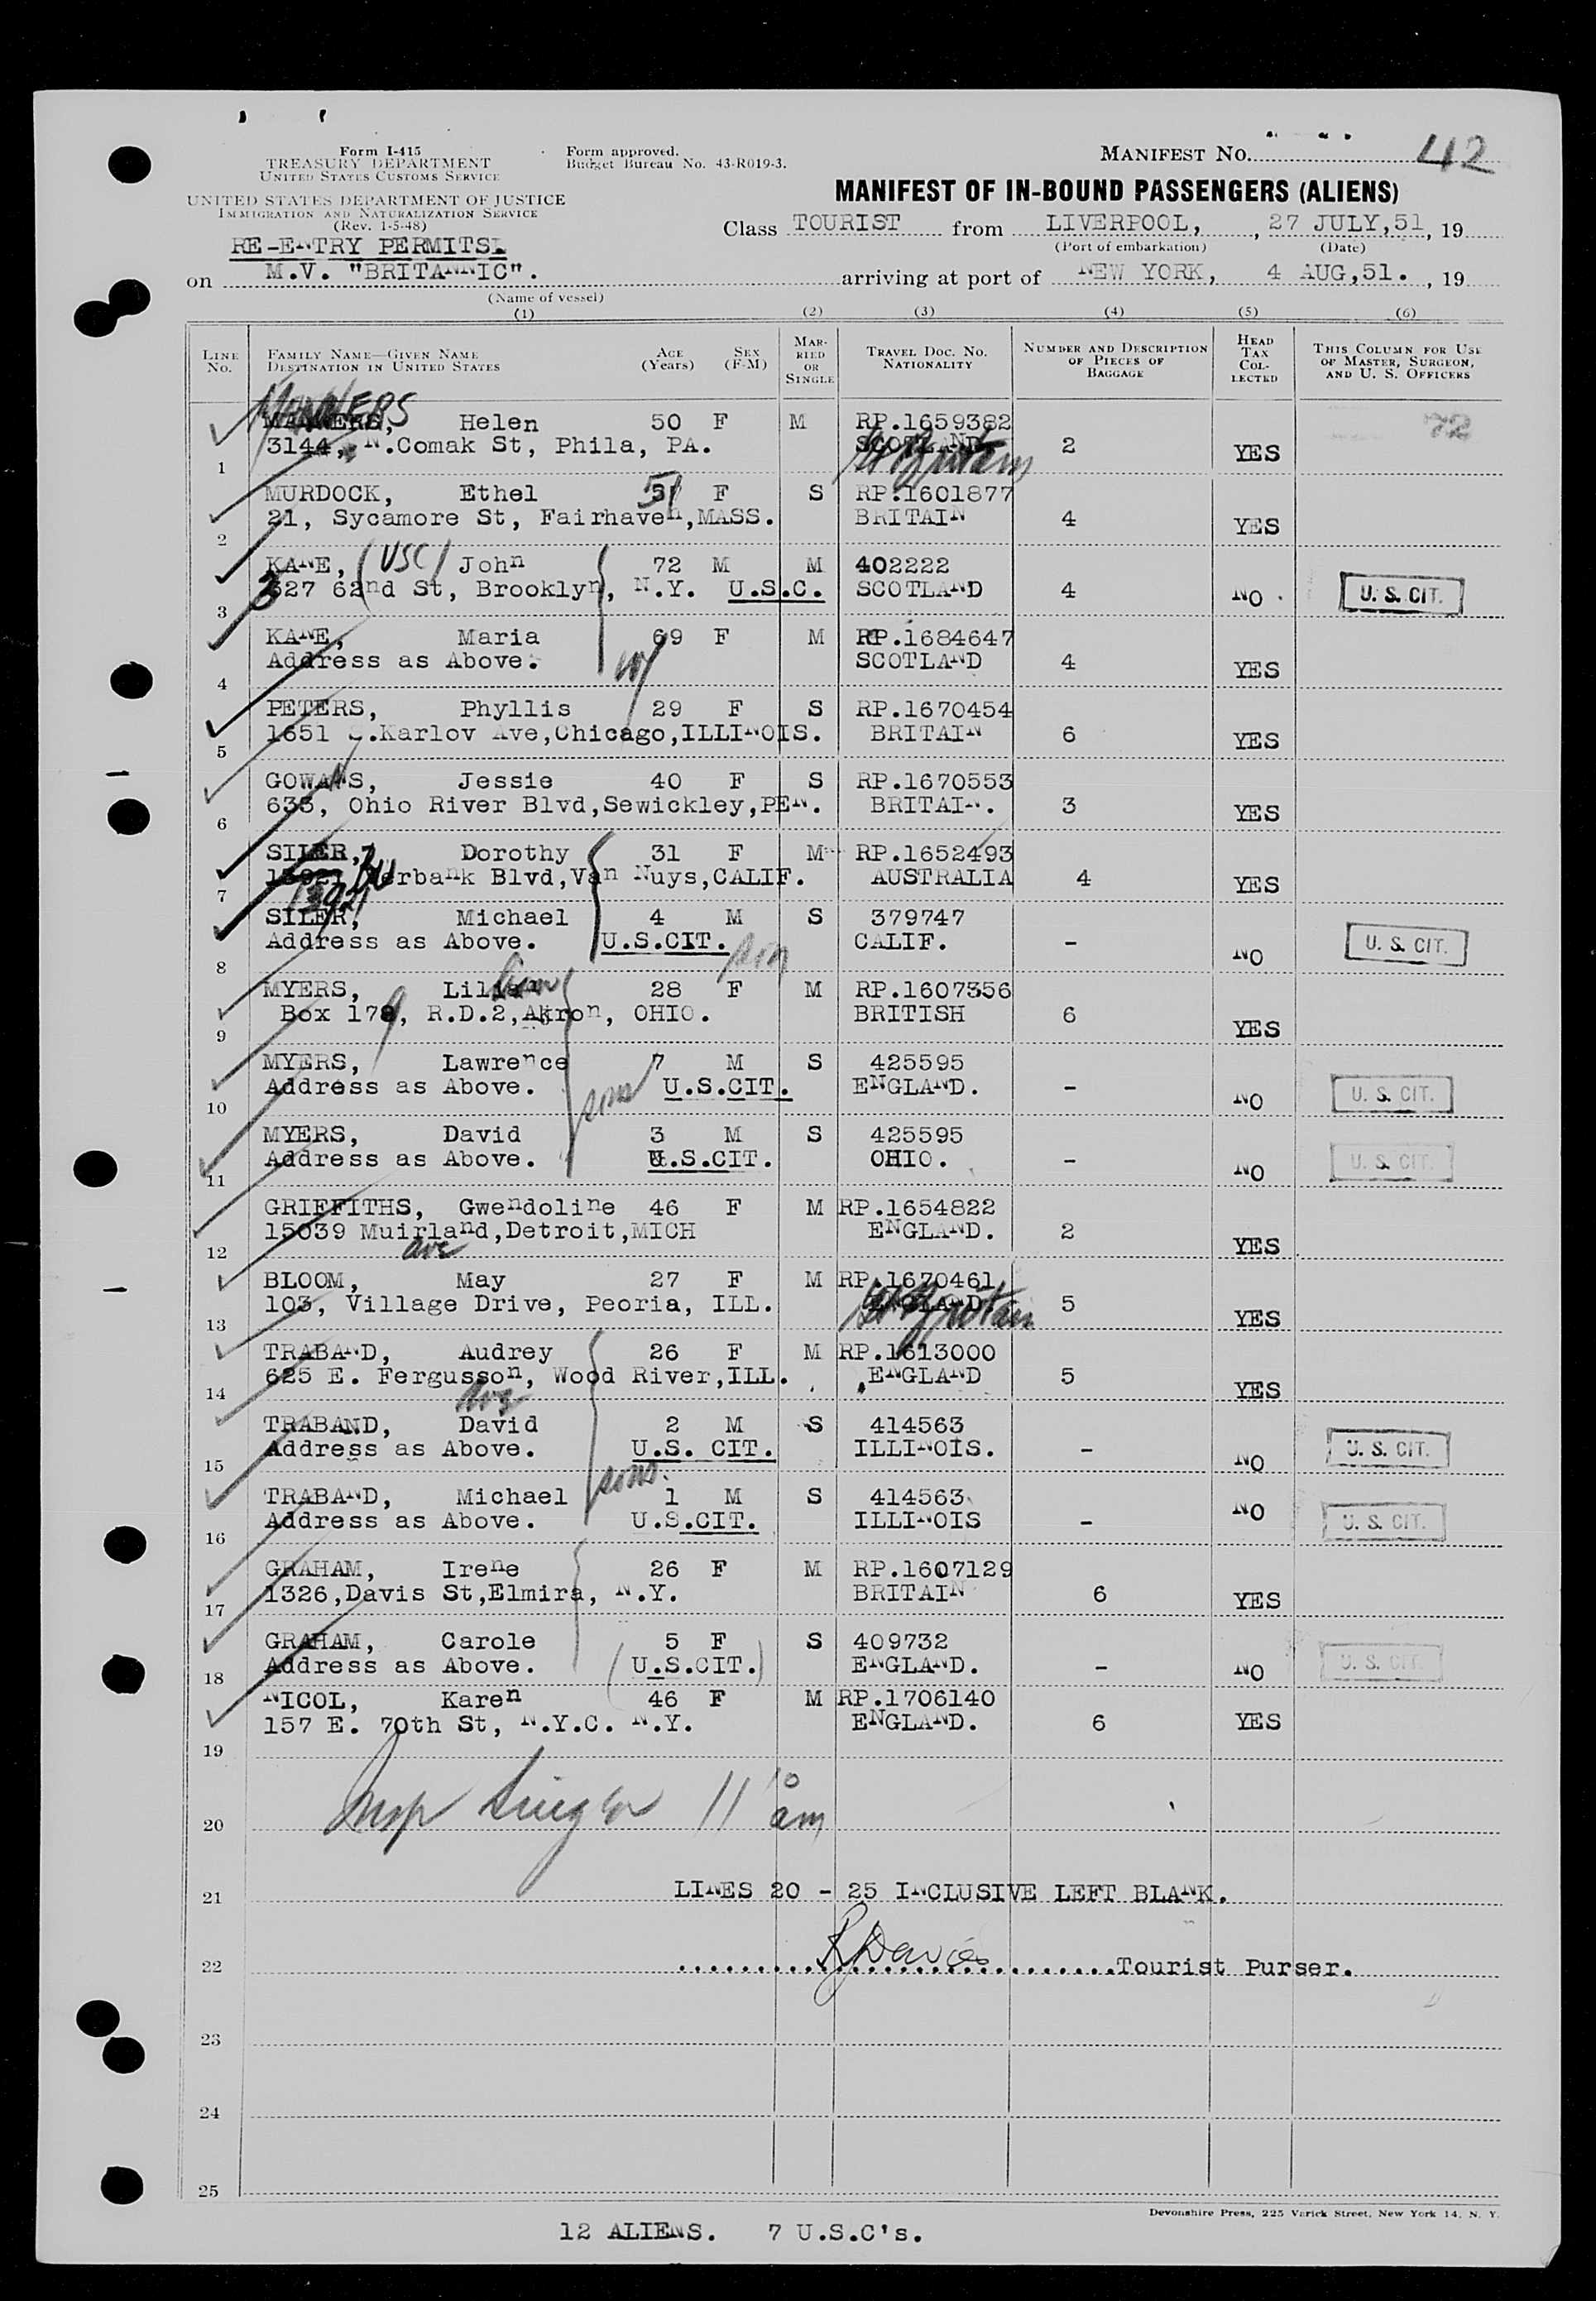 Form I-415
TREASURY DEPARTMENT
UNITED STATES CUSTOMS SERVICE
Form approved.
Budget Bureau No. 43-R019-3.
MANIFEST No. 42
UNITED STATES DEPARTMENT OF JUSTICE
IMMIGRATION AND NATURALIZATION SERVICE
(Rev. 1-5-48)
MANIFEST OF IN-BOUND PASSENGERS (ALIENS)
RE-ENTRY PERMITS.
Class TOURIST from LIVERPOOL, , 27 JULY,51, 19
(Port of embarkation) (Date)
on M.V. "BRITANNIC". arriving at port of NEW YORK, 4 AUG,51. , 19
(Name of vessel)
(1) (2) (3) (4) (5) (6)
LINE No. FAMILY NAME—GIVEN NAME DESTINATION IN UNITED STATES AGE (Years) SEX (F-M) MARRIED OR SINGLE TRAVEL DOC. NO. NATIONALITY NUMBER AND DESCRIPTION OF PIECES OF BAGGAGE HEAD TAX COLLECTED THIS COLUMN FOR USE OF MASTER, SURGEON, AND U. S. OFFICERS
MANNERS
Helen 50 F M RP.1659382 72
3144, N.Comak St, Phila, PA. SCOTLAND 2 YES
1
MURDOCK, Ethel 51 F S RP.1601877
21, Sycamore St, Fairhaven,MASS. BRITAIN 4 YES
2
KANE, (USC) John 72 M M 402222
327 62nd St, Brooklyn, N.Y. U.S.C. SCOTLAND 4 NO . U. S. CIT.
3
KANE, Maria 69 F M RP.1684647
Address as Above. SCOTLAND 4 YES
4
PETERS, Phyllis 29 F S RP.1670454
1651 S.Karlov Ave,Chicago,ILLINOIS. BRITAIN 6 YES
5
GOWANS, Jessie 40 F S RP.1670553
633, Ohio River Blvd,Sewickley,PEN. BRITAIN. 3 YES
6
SILER, Dorothy 31 F M RP.1652493
13921 Burbank Blvd,Van Nuys,CALIF. AUSTRALIA 4 YES
7
13921
SILER, Michael 4 M S 379747
Address as Above. U.S.CIT. son CALIF. - NO U. S. CIT.
8
MYERS, Lilian 28 F M RP.1607356
Box 179, R.D.2,Akron, OHIO. BRITISH 6 YES
9
MYERS, Lawrence 7 M S 425595
Address as Above. sons U.S.CIT. ENGLAND. - NO U. S. CIT.
10
MYERS, David 3 M S 425595
Address as Above. U.S.CIT. OHIO. - NO U. S. CIT.
11
GRIFFITHS, Gwendoline 46 F M RP.1654822
15039 Muirland,Detroit,MICH ENGLAND. 2 YES
ave
12
BLOOM, May 27 F M RP.1670461
103, Village Drive, Peoria, ILL. ENGLAND. Gt Britain 5 YES
13
TRABAND, Audrey 26 F M RP.1613000
625 E. Fergusson, Wood River,ILL. ENGLAND 5 YES
Ave
14
TRABAND, David 2 M S 414563
Address as Above. U.S. CIT. ILLINOIS. - NO U. S. CIT.
15
sons.
TRABAND, Michael 1 M S 414563
Address as Above. U.S.CIT. ILLINOIS - NO U. S. CIT.
16
GRAHAM, Irene 26 F M RP.1607129
1326,Davis St,Elmira, N.Y. BRITAIN 6 YES
17
GRAHAM, Carole 5 F S 409732
Address as Above. (U.S.CIT.) ENGLAND. - NO U. S. CIT.
18
NICOL, Karen 46 F M RP.1706140
157 E. 70th St, N.Y.C. N.Y. ENGLAND. 6 YES
19
Insp Singer 11 10 am
20
21 LINES 20 - 25 INCLUSIVE LEFT BLANK.
22 RJDavies Tourist Purser.
23
24
25
Devonshire Press, 225 Varick Street, New York 14, N. Y.
12 ALIENS. 7 U.S.C's.